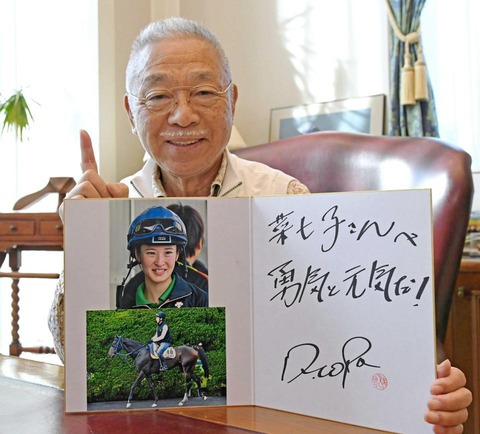 菜七子さんへ
勇気と元気だ!
Dr.コパ